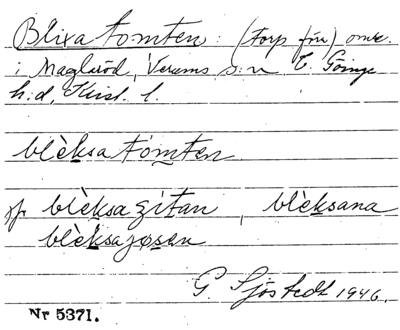 Blixatomten: (torp förr) omr.
i Maglaröd, Verums s:n V. Göinge
h:d, Krist. l.
blèksatòmten
jfr blèksagitan, blèksana
blèksajosen
G. Sjöstedt 1946.
Nr 5371.